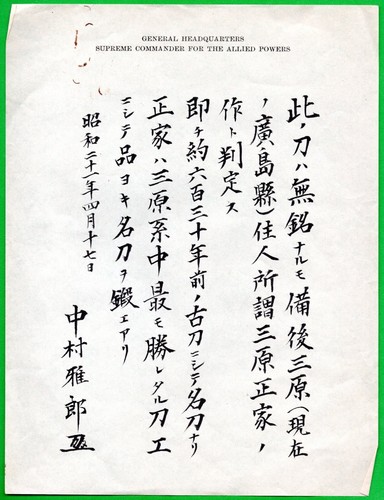 GENERAL HEADQUARTERS
SUPREME COMMANDER FOR THE ALLIED POWERS
此ノ刀ハ無銘ナルモ備後三原(現在
ノ廣島縣)住人所謂三原正家ノ
作ト判定ス
即チ約六百三十年前ノ古刀ニシテ名刀ナリ
正家ハ三原系中最モ勝レタル刀工
ニシテ品ヨキ名刀ヲ鍛エアリ
昭和二十一年四月十七日
中村雅郎